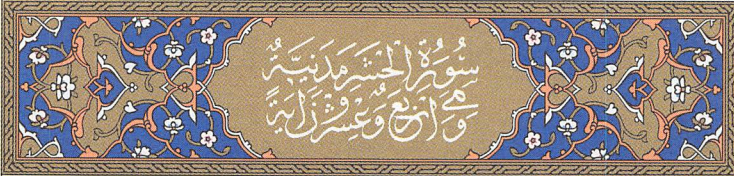 سُورَةُ الْحَشْرِ مَدَنِيَّةٌ
وَهِيَ اَرْبَعٌ وَعِشْرُونَ اٰيَةً